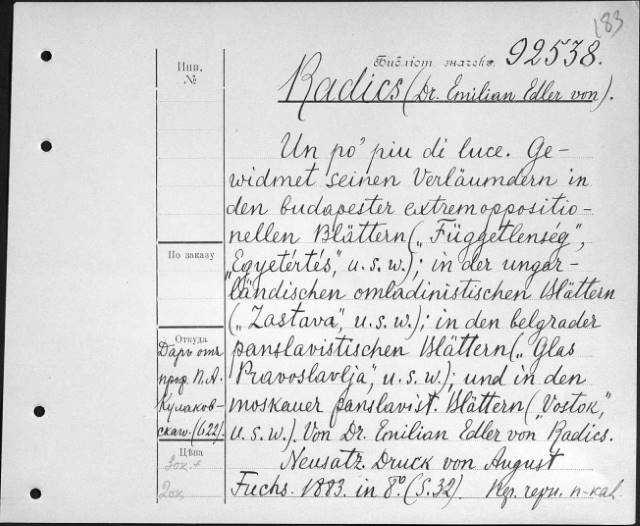 183
Библіот. значекъ 92538.
Инв.
№
Radics (Dr. Emilian Edler von).
Un po' piu di luce. Ge-
widmet seinen Verläumdern in
den budapester extremoppositio-
nellen Blättern („Függetlenség",
По заказу
„Egyetértés", u. s. w.); in der ungar-
ländischen omladinistischen Blättern
(„Zastava", u. s. w.); in den belgrader
Откуда
Даръ отъ
проф. П. А.
Кулаков-
скаго. (622).
panslavistischen Blättern („Glas
Pravoslavlja", u. s. w.); und in den
moskauer panslavist. Blättern („Vostok",
u. s. w.). Von Dr. Emilian Edler von Radics.
Цѣна
Neusatz. Druck von August
Fuchs. 1883. in 8° (S. 32).